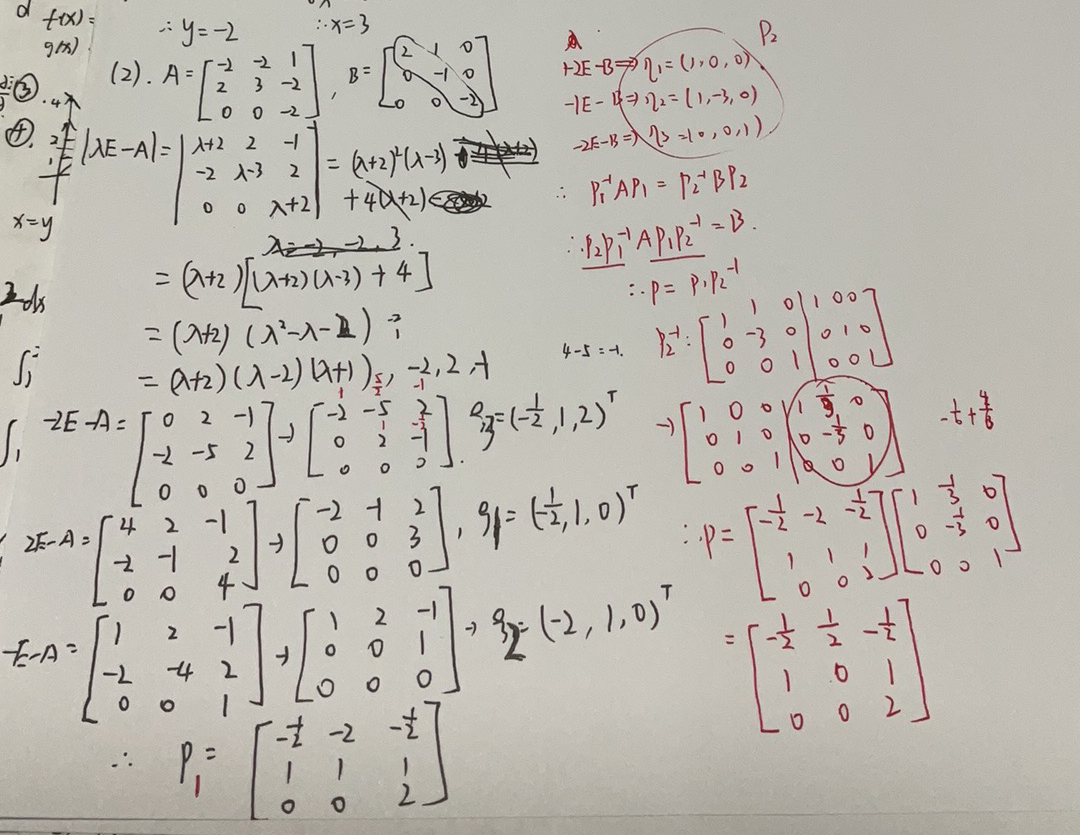 d f(x)=
g(x)
∴ y = -2 ∴ x = 3
(2). A = [-2 -2 1; 2 3 -2; 0 0 -2], B = [2 1 0; 0 -1 0; 0 0 -2]
|λE-A| = |λ+2 2 -1; -2 λ-3 2; 0 0 λ+2| = (λ+2)²(λ-3)
+4(λ+2)
λ = -2, -2, 3.
= (λ+2)[(λ+2)(λ-3)+4]
= (λ+2)(λ²-λ-2)
= (λ+2)(λ-2)(λ+1), -2, 2, -1
-2E-A = [0 2 -1; -2 -5 2; 0 0 0] → [-2 -5 2; 0 2 -1; 0 0 0]. ξ3 = (-1/2, 1, 2)^T
2E-A = [4 2 -1; -2 -1 2; 0 0 4] → [-2 -1 2; 0 0 3; 0 0 0], ξ1 = (-1/2, 1, 0)^T
-E-A = [1 2 -1; -2 -4 2; 0 0 1] → [1 2 -1; 0 0 1; 0 0 0] → ξ2 = (-2, 1, 0)^T
∴ P1 = [-1/2 -2 -1/2; 1 1 1; 0 0 2]
P2
+2E-B ⇒ η1 = (1, 0, 0)
-1E-B ⇒ η2 = (1, -3, 0)
-2E-B ⇒ η3 = (0, 0, 1)
∴ P1⁻¹AP1 = P2⁻¹BP2
∴ P2P1⁻¹AP1P2⁻¹ = B.
∴ P = P1P2⁻¹
4-5=-1.
P2⁻¹: [1 1 0 | 1 0 0; 0 -3 0 | 0 1 0; 0 0 1 | 0 0 1]
→ [1 0 0 | 1 1/3 0; 0 1 0 | 0 -1/3 0; 0 0 1 | 0 0 1]
∴ P = [-1/2 -2 -1/2; 1 1 1; 0 0 2] [1 1/3 0; 0 -1/3 0; 0 0 1]
= [-1/2 1/2 -1/2; 1 0 1; 0 0 2]
x=y
dx